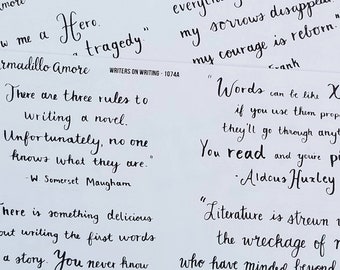 ow me a Hero.
a tragedy"
everything
my sorrows disappear
my courage is reborn."
Frank
Armadillo Amore
WRITERS ON WRITING - 1074A
There are three rules to
writing a novel.
Unfortunately, no one
knows what they are."
-W. Somerset Maugham
"Words can be like X
if you use them prope
they'll go through anyt
You read and you're pi
-Aldous Huxley
There is something delicious
out writing the first words
a story. You never know
"Literature is strewn w
the wreckage of m
who have minded beyond